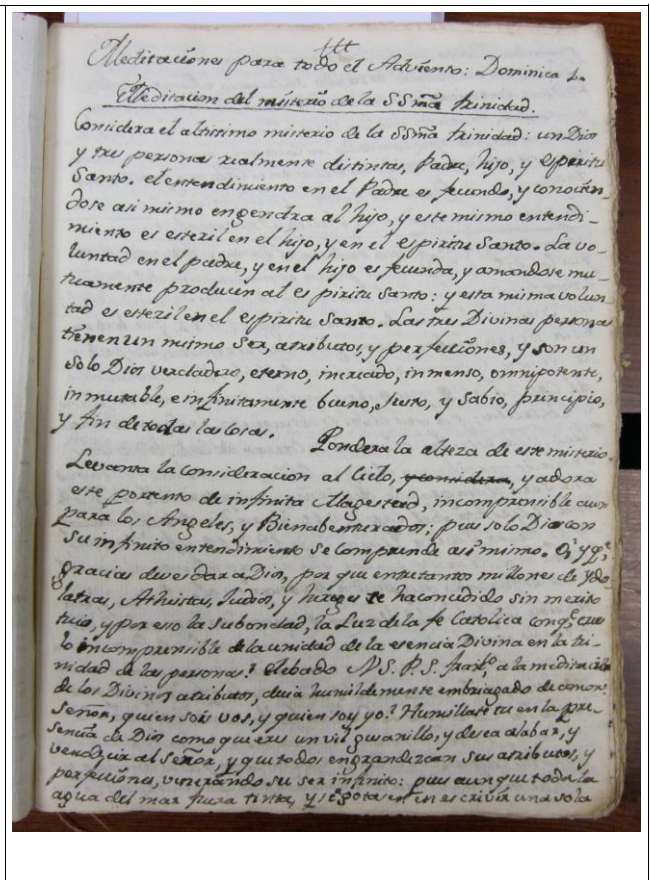 †††
Meditaciónes para todo el Adviento: Dominica 1.
Meditacion del misterio de la SSma trinidad.
Considera el altisimo misterio de la SSma trinidad: un Dios
y tres personas realmente distintas, Padre, hijo, y Espiritu
Santo. el entendimiento en el Padre es fecundo, y conocien-
dose asi mismo engendra al hijo, y este mismo entendi-
miento es esteril en el hijo, y en el espiritu Santo. La vo-
luntad en el padre, y en el hijo es fecunda, y amandose mu-
tuamente producen al espiritu Santo: y esta misma volun-
tad es esteril en el espiritu Santo. Las tres Divinas personas
tienen un mismo ser, atributos, y perfecciónes, y son un
solo Dios verdadero, eterno, increado, inmenso, omnipotente,
inmutable, e infinitamente bueno, Justo, y Sabio, principio,
y fin de todas las cosas. Pondera la alteza de este misterio.
Levanta la consideracion al Cielo, y considera, y adora
este portento de infinita Magestad, incomprensible aun
para los Angeles, y Bienabenturados; pues solo Dios con
su infinito entendimiento se comprende asi mismo. O! y q.e
gracias deves dar a Dios, por que entre tantos millones de Ydo
latras, Atheistas, Judios, y hereges te ha concedido sin merito
tuio, y por eso la su bondad, la Luz de la fe Catolica con q.e crees
lo incomprensible de la unidad de la esencia Divina en la tri-
nidad de las personas? elebado N S. P. S. Fran.co a la meditación
de los Divinos atributos, decia humildemente embriagado de amor:
señor, quien sois vos, y quien soy yo? Humillate tu en la pre-
sencia de Dios como que eres un vil gusanillo, y desea alabar, y
vendecir al señor, y que todos engrandezcan sus atributos, y
perfecciónes, venerando su ser infinito: pues aunque toda la
agua del mar fuera tinta, y se gotase en escrivir una sola